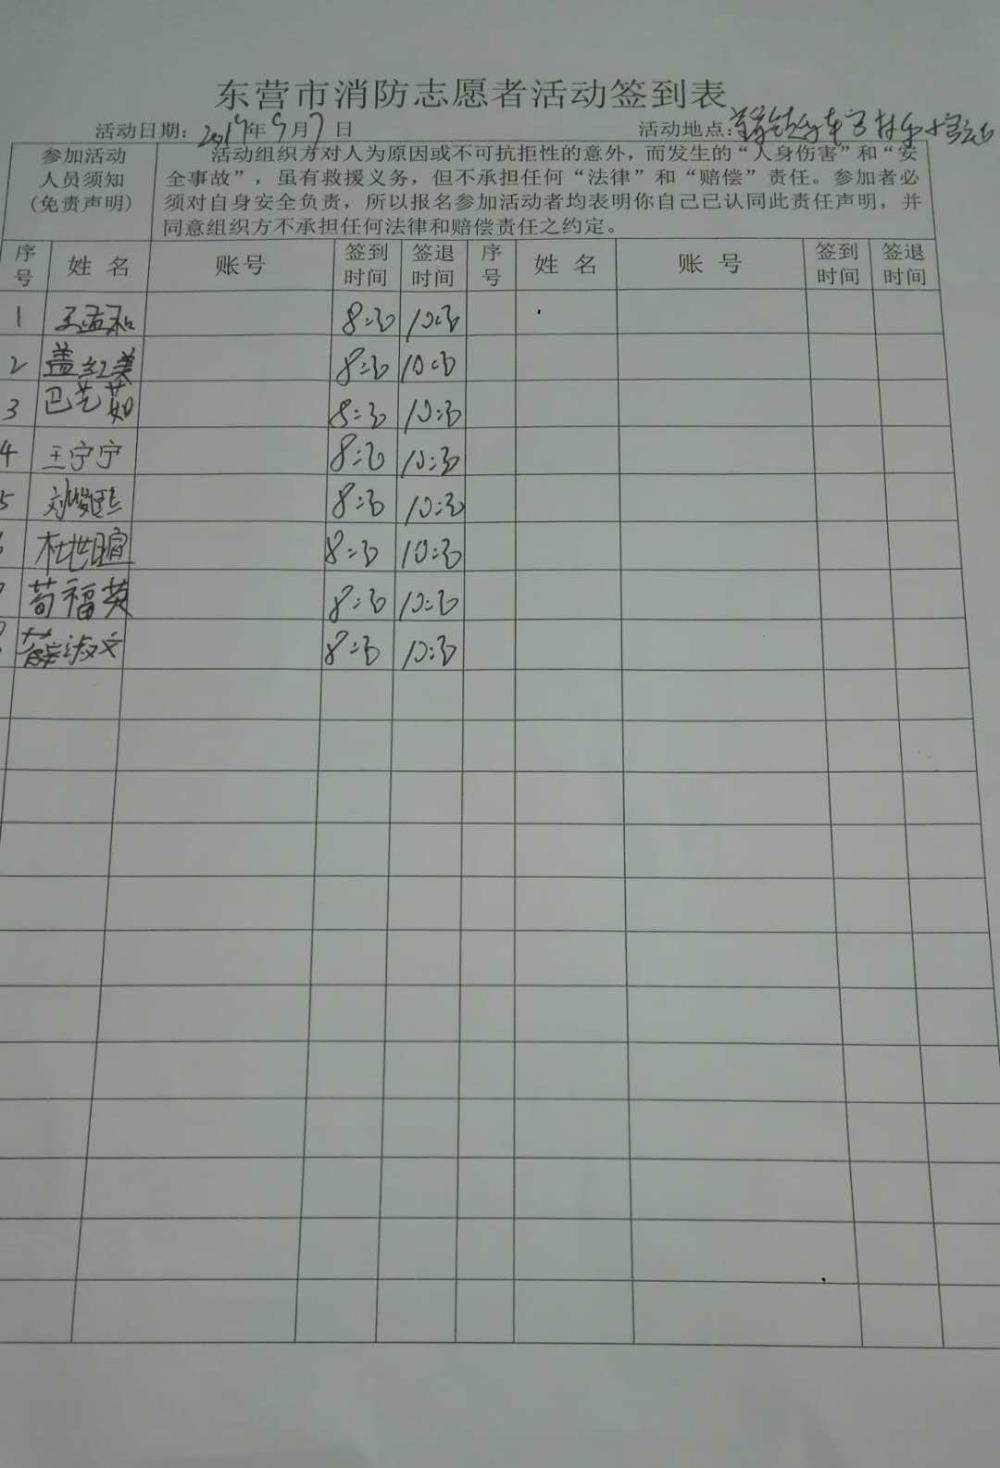 东营市消防志愿者活动签到表
活动日期：2019年9月7日 活动地点：
参加活动人员须知(免责声明)
活动组织方对人为原因或不可抗拒性的意外，而发生的“人身伤害”和“安
全事故”，虽有救援义务，但不承担任何“法律”和“赔偿”责任。参加者必
须对自身安全负责，所以报名参加活动者均表明你自己已认同此责任声明，并
同意组织方不承担任何法律和赔偿责任之约定。
序号 姓名 账号 签到时间 签退时间 序号 姓名 账号 签到时间 签退时间
1 王孟和 8:30 10:30
2 盖红美 8:30 10:30
3 巴艺茹 8:30 10:30
4 王宁宁 8:30 10:30
5 刘 8:30 10:30
杜世暄 8:30 10:30
苟福英 8:30 10:30
薛淑文 8:30 10:30